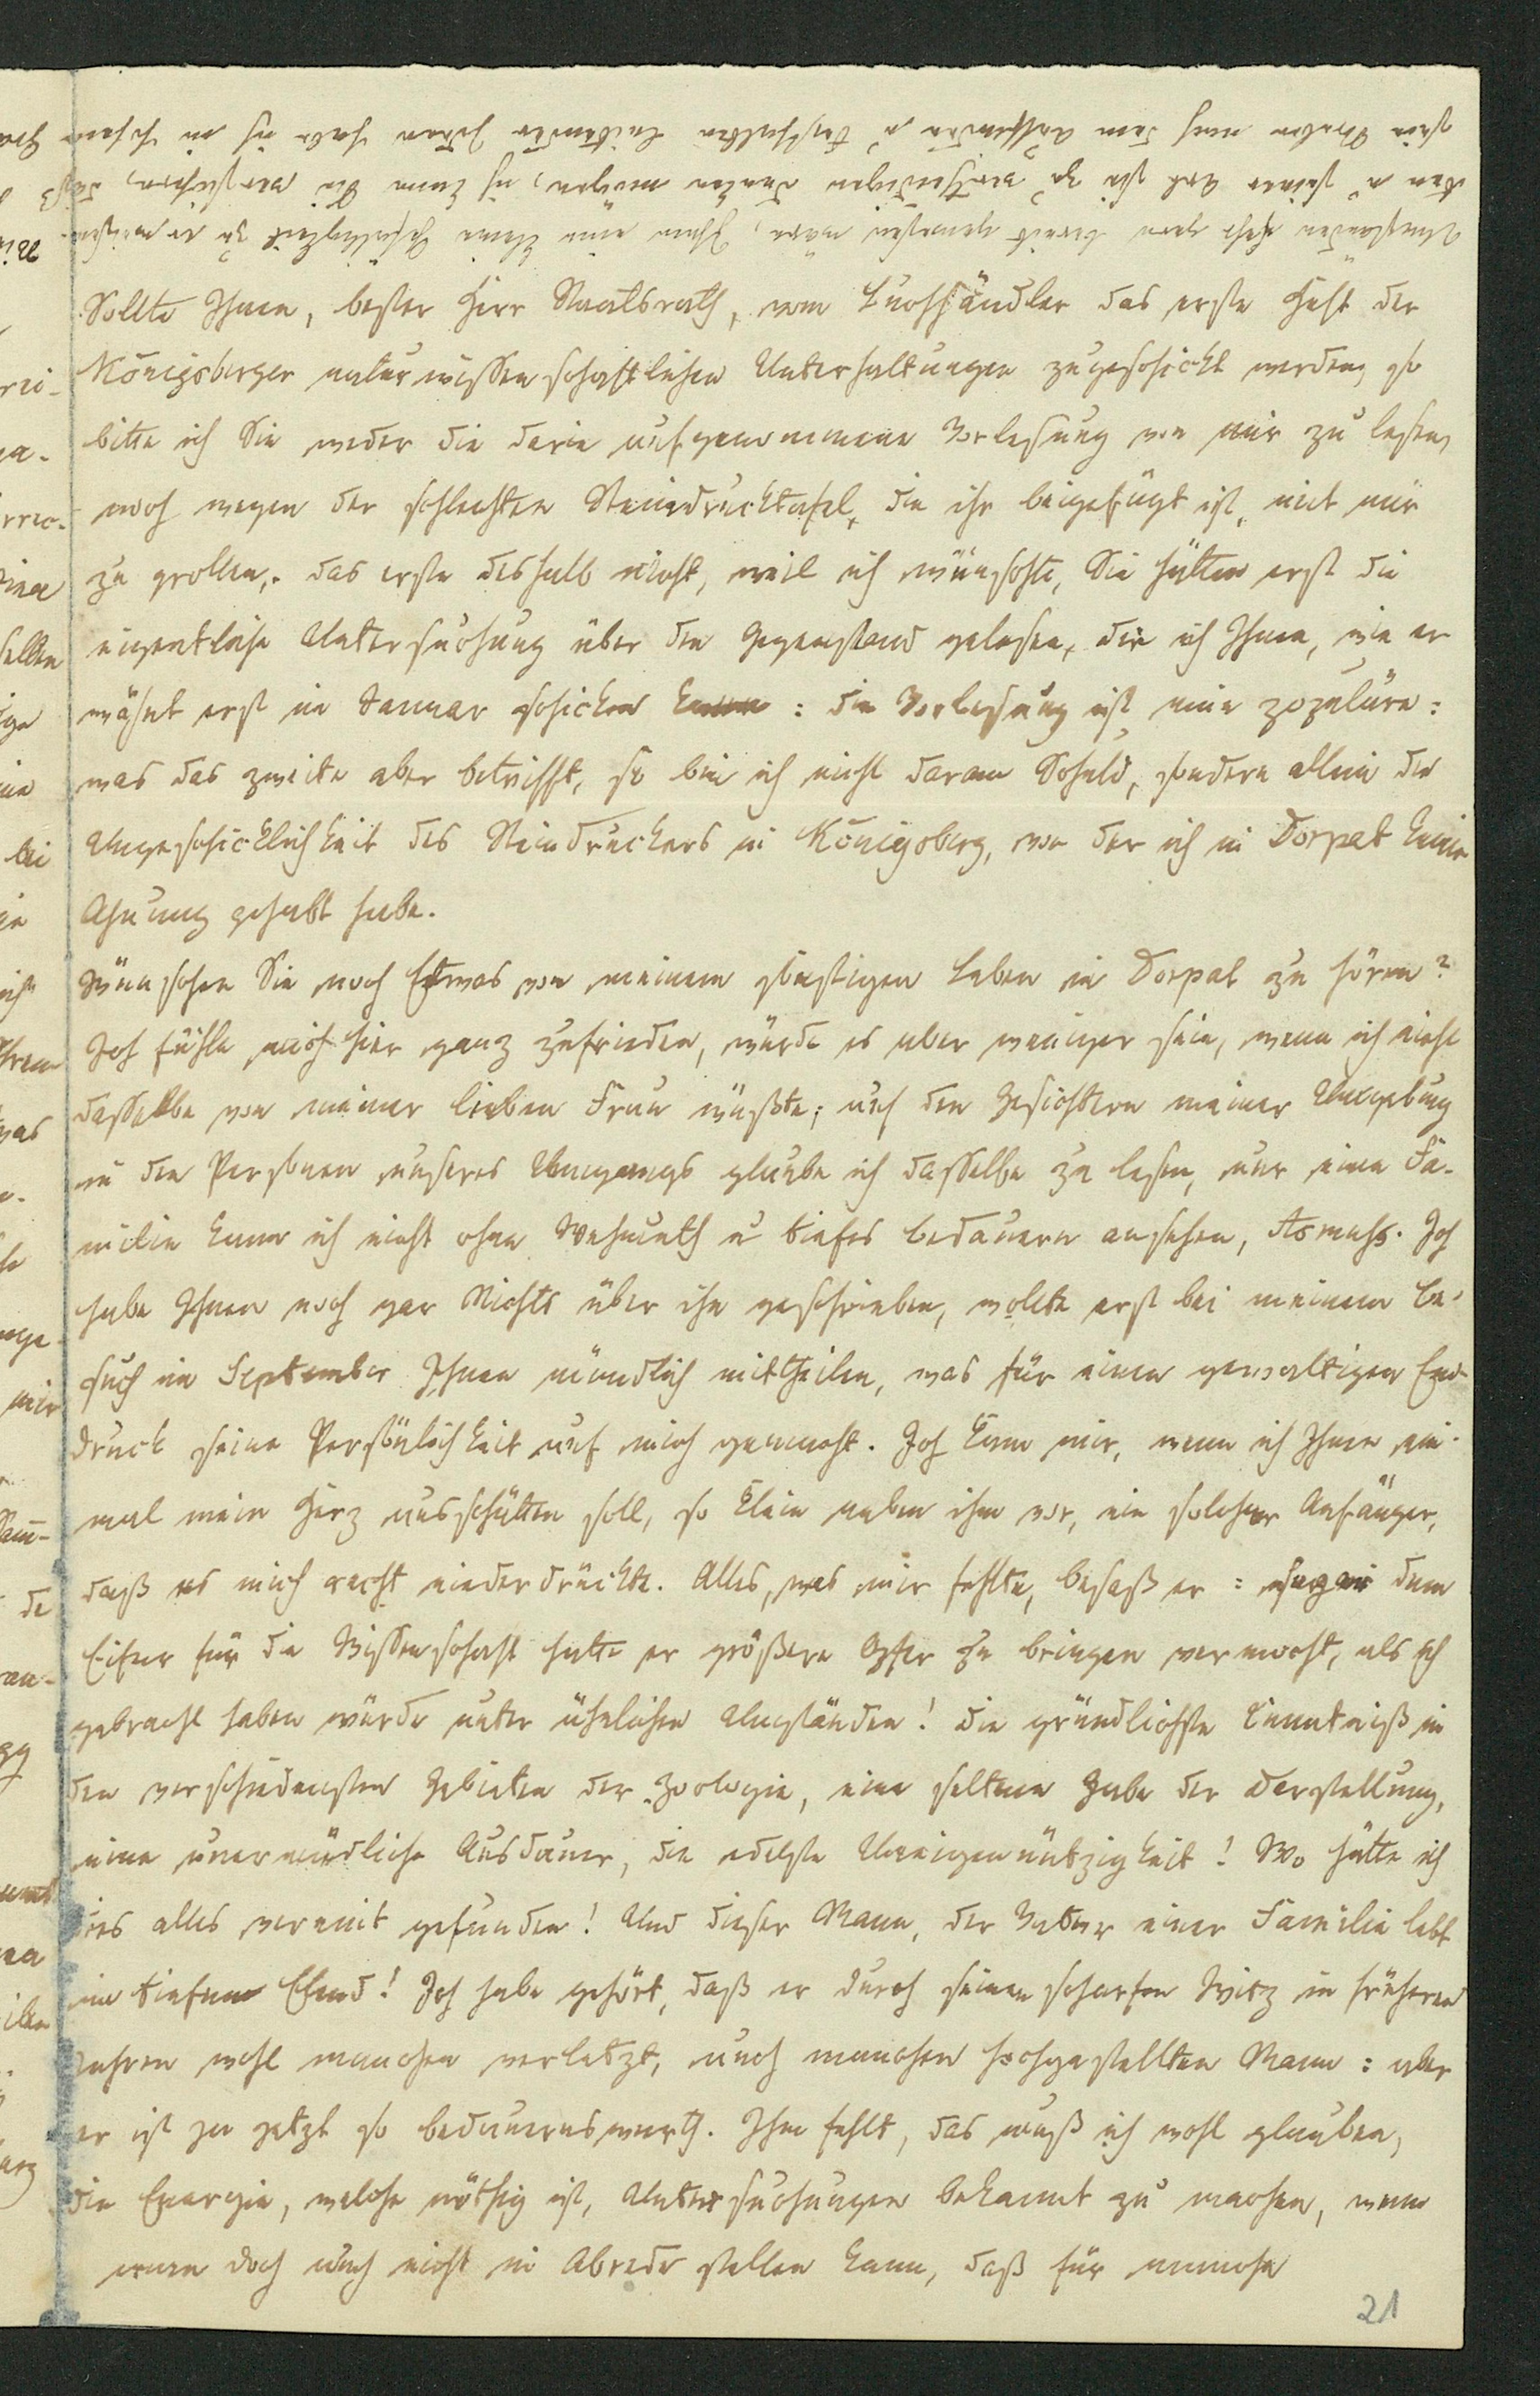 Sollte Ihnen, bester Herr Staatsrath, vom Buchhändler das erste Heft der
Königsberger naturwissenschaftlichen Unterhaltungen zugeschickt werden, so
bitte ich Sie weder die darin aufgenommene Vorlesung von mir zu lesen,
noch wegen der schlechten Steindrucktafel, die ihr beigefügt ist, mit mir
zu grollen, das erste deshalb nicht, weil ich wünschte, Sie hätten erst die
eigentliche Untersuchung über den Gegenstand gelesen, die ich Ihnen, wie er
wähnt erst im Januar schicken kann: die Vorlesung ist eine populäre:
was das zweite aber betrifft, so bin ich nicht daran Schuld, sondern allein die
Ungeschicklichkeit des Steindruckers in Königsberg, von der ich in Dorpat keine
Ahnung gehabt habe.
Wünschen Sie noch Etwas von meinem sonstigen Leben in Dorpat zu hören?
Ich fühle mich hier ganz zufrieden, würde es aber weniger sein, wenn ich nicht
dasselbe von meiner lieben Frau wüßte; auf den Gesichtern meiner Umgebung
u den Personen unseres Umgangs glaube ich dasselbe zu lesen, nur eine Fa-
milie kann ich nicht ohne Wehmuth u tiefes Bedauern ansehen, Asmuss. Ich
habe Ihnen noch gar Nichts über ihn geschrieben, wollte erst bei meinem Be-
such im September Ihnen mündlich mittheilen, was für einen gewaltigen Ein-
druck seine Persönlichkeit auf mich gemacht. Ich kam mir, wenn ich Ihnen ein-
mal mein Herz ausschütten soll, so klein neben ihm vor, ein solcher Anfänger,
daß es mich recht niederdrückte. Alles, was mir fehlte, besaß er: sogar dem
Eifer für die Wissenschaft hatte er größere Opfer zu bringen vermocht, als ich
gebracht haben würde unter ähnlichen Umständen! Die gründlichste Kenntniß in
den verschiedensten Gebieten der Zoologie, eine seltene Gabe der Darstellung,
eine unermüdliche Ausdauer, die edelste Uneigennützigkeit! Wo hätte ich
dies alles vereint gefunden! Und dieser Mann, der Vater einer Familie lebt
im tiefen Elend! Ich habe gehört, daß er durch seinen scharfen Witz in früheren
Jahren wohl manchen verletzt, auch manchen hochgestellten Mann: aber
er ist ja jetzt so bedauernswerth. Ihm fehlt, das muß ich wohl glauben,
die Energie, welche nöthig ist, Untersuchungen bekannt zu machen, wenn
man doch auch nicht in Abrede stellen kann, daß für manche
21